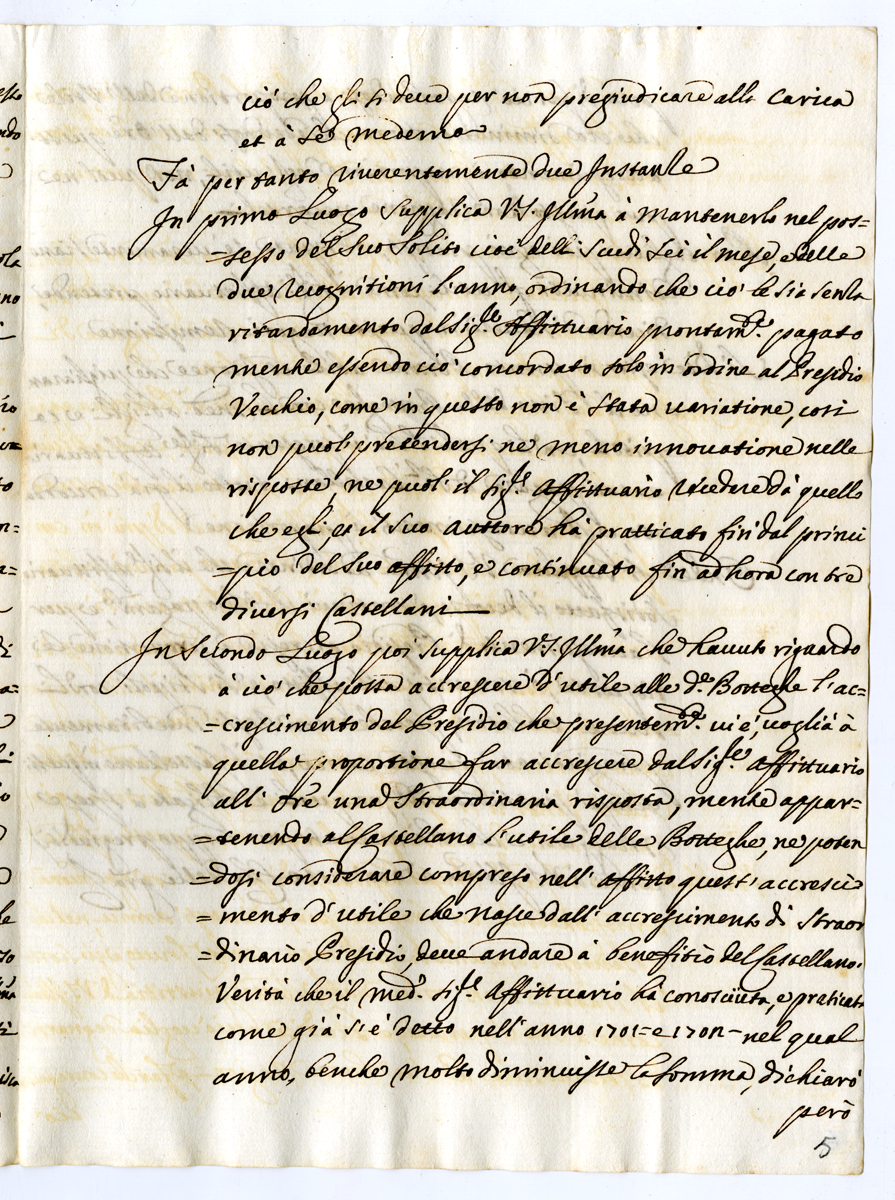 ciò che gli si deve per non pregiudicare alla Carica
et à sè medemo
Fà per tanto riverentemente due Instanze
In primo Luogo supplica V.S. Illma à mantenerlo nel pos=
=sesso del suo solito cioè delli scudi sei il mese, e delle
due recognitioni l'anno, ordinando che ciò le sia senza
ritardamento dal Sig.re Affittuario prontam.te pagato
mentre essendo ciò concordato solo in ordine al Presidio
Vecchio, come in questo non è stata variatione, così
non puol pretendersi ne meno innovatione nelle
risposte, ne puol' il Sig.re Affittuario recedere dà quello
che egli, et il suo Auttore hà pratticato fin dal princi
=pio del suo affitto, e continuato fin' ad hora con tre
diversi Castellani
In Secondo Luogo poi supplica V.S. Illma che havuto riguardo
à ciò che possa accrescere d'utile alle d.e Botteghe l'ac=
=crescimento del Presidio che presentem.te vi è, voglia à
quella proportione far accrescere dal Sig.re Affittuario
all' Ore una straordinaria risposta, mentre appar=
=tenendo al Castellano l'utile delle Botteghe, ne poten
=dosi considerare compreso nell' affitto quest' accresci
=mento d'utile che nasce dall' accrescimento di straor
=dinario Presidio, deve andare à benefitio del Castellano.
Verità che il med.o Sig.re Affittuario hà conosciuta, e praticata
come già si è detto nell'anno 1701= e 1702= nel qual
anno, benche molto diminuisse la somma, dichiarò
però
5